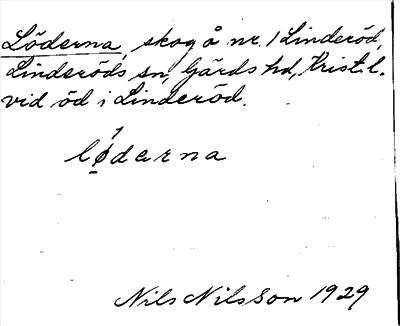 Löderna, skog å nr. 1 Linderöd,
Linderöds sn, Gärds hd, Krist. l.
vid öd i Linderöd.
lǿ̣derna
Nils Nilsson 1929